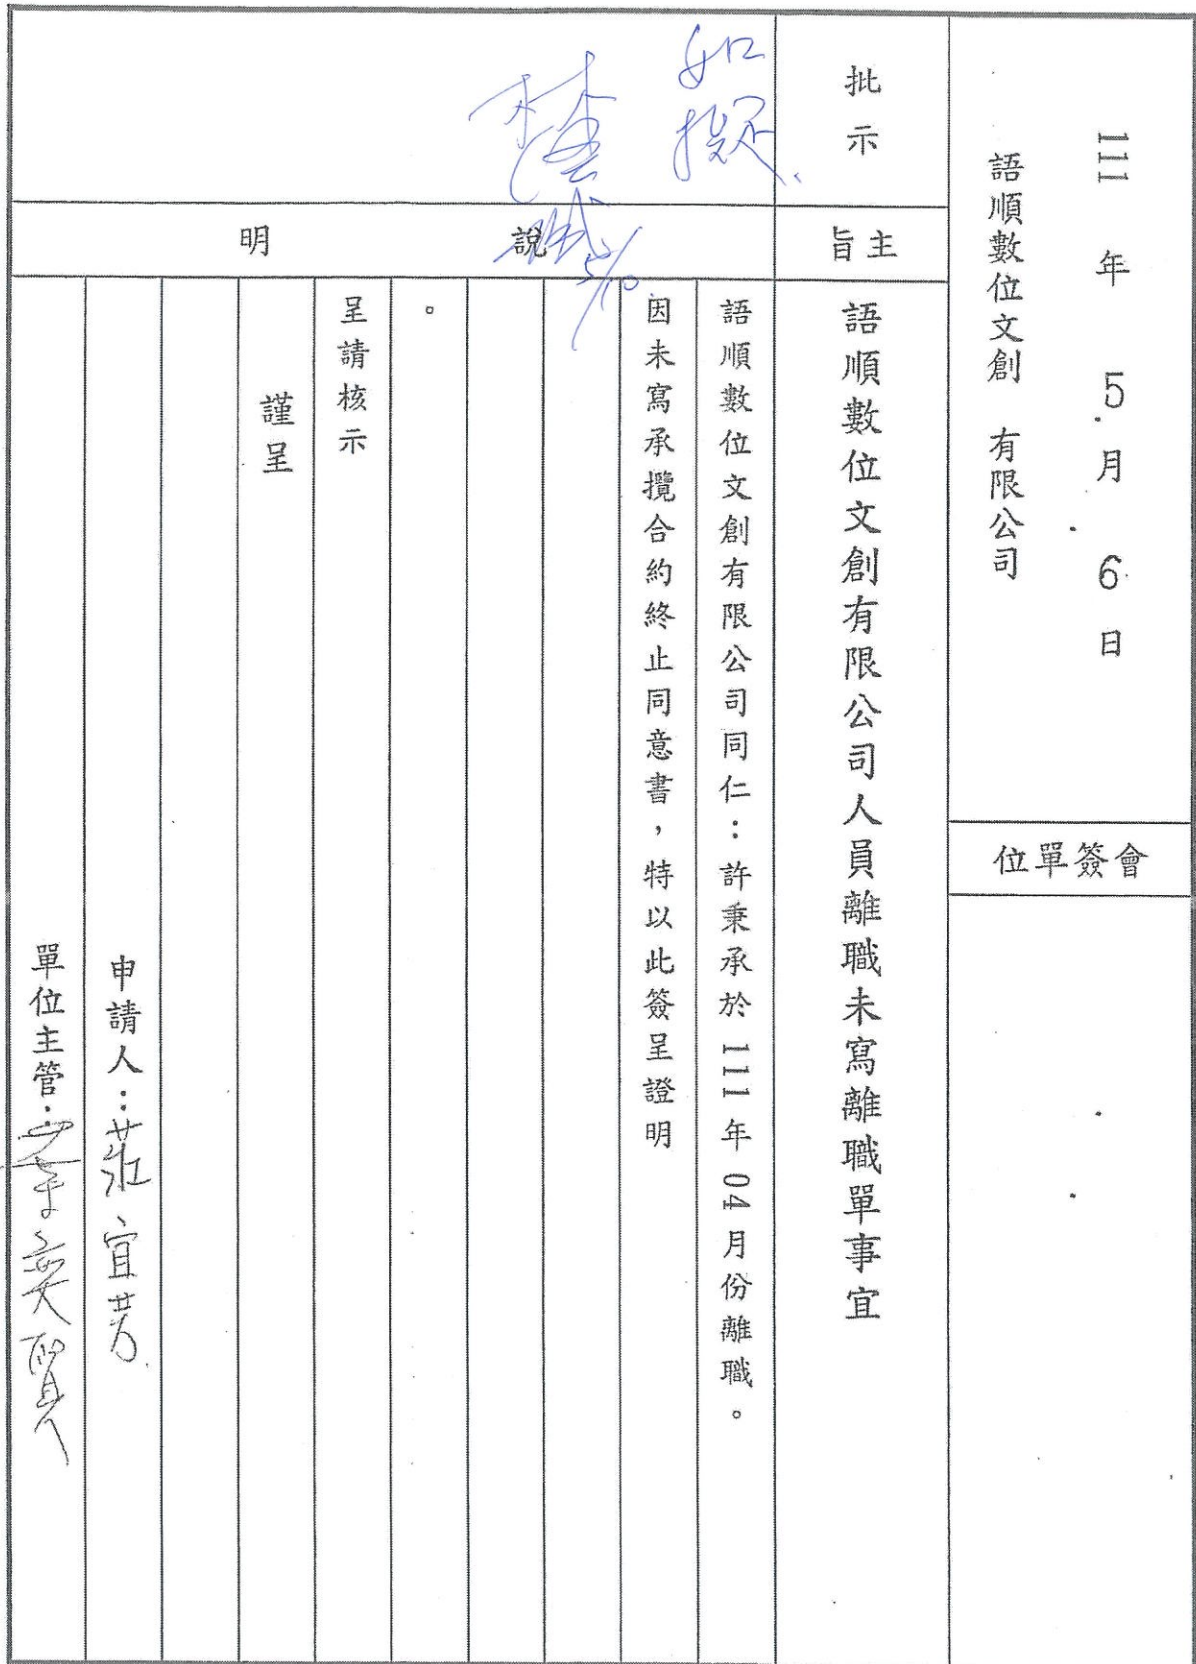 111 年 5 月 6 日
語順數位文創 有限公司
會簽單位
批示
如擬
5/10
主旨
語順數位文創有限公司人員離職未寫離職單事宜
說明
語順數位文創有限公司同仁：許秉承於 111 年 04 月份離職。
因未寫承攬合約終止同意書，特以此簽呈證明
。
呈請核示
謹呈
申請人：莊宜芳
單位主管：